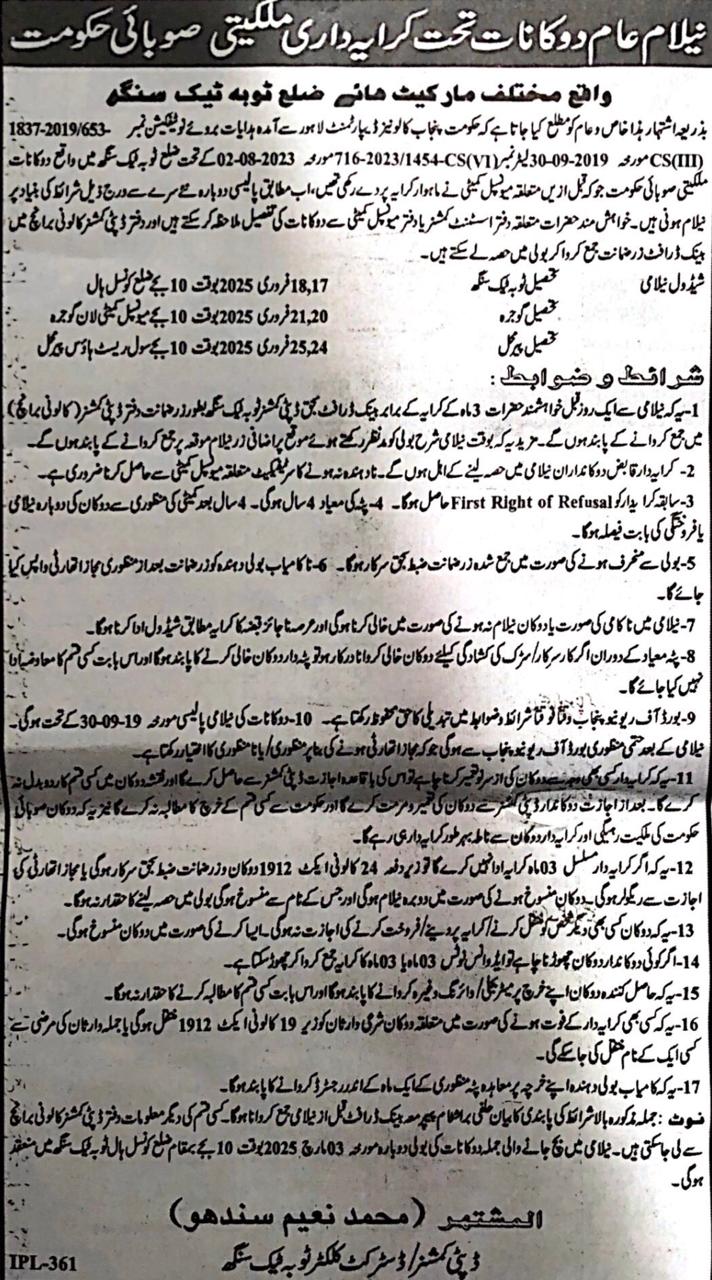 نیلام عام دوکانات تحت کرایہ داری ملکیتی صوبائی حکومت
واقع مختلف مارکیٹ ہائے ضلع ٹوبہ ٹیک سنگھ
بذریعہ اشتہار ہذا خاص و عام کو مطلع کیا جاتا ہے کہ حکومت پنجاب کالونیز ڈیپارٹمنٹ لاہور سے آمدہ ہدایات بروئے نوٹیفکیشن نمبر 1837-2019/653-
CS(III) مورخہ 30-09-2019 لیٹر نمبر 716-2023/1454-CS(VI) مورخہ 02-08-2023 کے تحت ضلع ٹوبہ ٹیک سنگھ میں واقع دوکانات
ملکیتی صوبائی حکومت جو کہ قبل ازیں متعلقہ میونسپل کمیٹی نے ماہوار کرایہ پر دے رکھی تھیں، اب مطابق پالیسی دوبارہ نئے سرے سے درج ذیل شرائط کی بنیاد پر
نیلام ہونی ہیں۔ خواہش مند حضرات متعلقہ دفتر اسسٹنٹ کمشنر یا دفتر میونسپل کمیٹی سے دوکانات کی تفصیل ملاحظہ کر سکتے ہیں اور دفتر ڈپٹی کمشنر کالونی برانچ میں
بینک ڈرافٹ زر ضمانت جمع کروا کر بولی میں حصہ لے سکتے ہیں۔
شیڈول نیلامی تحصیل ٹوبہ ٹیک سنگھ 18,17 فروری 2025 بوقت 10 بجے ضلع کونسل ہال
تحصیل گوجرہ 21,20 فروری 2025 بوقت 10 بجے میونسپل کمیٹی لان گوجرہ
تحصیل پیرمحل 25,24 فروری 2025 بوقت 10 بجے سول ریسٹ ہاؤس پیرمحل
شرائط و ضوابط:
1- یہ کہ نیلامی سے ایک روز قبل خواہشمند حضرات 3 ماہ کے کرایہ کے برابر بینک ڈرافٹ بحق ڈپٹی کمشنر ٹوبہ ٹیک سنگھ بطور زر ضمانت دفتر ڈپٹی کمشنر (کالونی برانچ)
میں جمع کروانے کے پابند ہوں گے۔ مزید یہ کہ بوقت نیلامی شرح بولی کو مدنظر رکھتے ہوئے موقع پر اضافی زر نیلام موقعہ پر جمع کروانے کے پابند ہوں گے۔
2- کرایہ دار قابض دوکانداران نیلامی میں حصہ لینے کے اہل ہوں گے۔ نادہندہ نہ ہونے کا سرٹیفکیٹ متعلقہ میونسپل کمیٹی سے حاصل کرنا ضروری ہے۔
3- سابقہ کرایہ دار کو First Right of Refusal حاصل ہوگا۔ 4- پٹہ کی معیاد 4 سال ہوگی۔ 4 سال بعد کمیٹی کی منظوری سے دوکان کی دوبارہ نیلامی
یا فروختگی کی بابت فیصلہ ہوگا۔
5- بولی سے منحرف ہونے کی صورت میں جمع شدہ زر ضمانت ضبط بحق سرکار ہوگا۔ 6- ناکامیاب بولی دہندہ کو زر ضمانت بعد از منظوری مجاز اتھارٹی واپس کیا
جائے گا۔
7- نیلامی میں ناکامی کی صورت یا دوکان نیلام نہ ہونے کی صورت میں خالی کرنا ہوگی اور عرصہ ناجائز قبضہ کا کرایہ مطابق شیڈول ادا کرنا ہوگا۔
8- پٹہ معیاد کے دوران اگر کار سرکار/سڑک کی کشادگی کیلئے دوکان خالی کروانا درکار ہو تو پٹہ دار دوکان خالی کرنے کا پابند ہوگا اور اس بابت کسی قسم کا معاوضہ ادا
نہیں کیا جائے گا۔
9- بورڈ آف ریونیو پنجاب وقتاً فوقتاً شرائط و ضوابط میں تبدیلی کا حق محفوظ رکھتا ہے۔ 10- دوکانات کی نیلامی پالیسی مورخہ 30-09-19 کے تحت ہوگی۔
نیلامی کے بعد حتمی منظوری بورڈ آف ریونیو پنجاب سے ہوگی جو کہ مجاز اتھارٹی ہونے کی بنا پر منظوری/یا نامنظوری کا اختیار رکھتا ہے۔
11- یہ کہ کرایہ دار کسی بھی وجہ سے دوکان کی از سر نو تعمیر کرنا چاہے تو اس کی باقاعدہ اجازت ڈپٹی کمشنر سے حاصل کرے گا اور نقشہ دوکان میں کسی قسم کا ردوبدل نہ
کرے گا۔ بعد از اجازت دوکاندار ڈپٹی کمشنر سے دوکان کی تعمیر و مرمت کرے گا اور حکومت سے کسی قسم کے خرچ کا مطالبہ نہ کرے گا نیز یہ کہ دوکان صوبائی
حکومت کی ملکیت رہیگی اور کرایہ دار دوکان سے ناطہ بہر طور کرایہ داری ہی رہے گا۔
12- یہ کہ اگر کرایہ دار مسلسل 03 ماہ کرایہ ادا نہیں کرے گا تو زیر دفعہ 24 کالونی ایکٹ 1912 دوکان و زر ضمانت ضبط بحق سرکار ہوگی یا مجاز اتھارٹی کی
اجازت سے ریگولر ہوگی۔ دوکان منسوخ ہونے کی صورت میں دوبرہ نیلام ہوگی اور جس کے نام سے منسوخ ہوگی بولی میں حصہ لینے کا حقدار نہ ہوگا۔
13- یہ کہ دوکان کسی بھی دیگر شخص کو منتقل کرنے/کرایہ پر دینے/فروخت کرنے کی اجازت نہ ہوگی۔ ایسا کرنے کی صورت میں دوکان منسوخ ہوگی۔
14- اگر کوئی دوکاندار دوکان چھوڑنا چاہے تو ایڈوانس نوٹس 03 ماہ یا 03 ماہ کا کرایہ جمع کروا کر چھوڑ سکتا ہے۔
15- یہ کہ حاصل کنندہ دوکان اپنے خرچ پر میٹر بجلی/وائرنگ وغیرہ کروانے کا پابند ہوگا اور اس بابت کسی قسم کا مطالبہ کرنے کا حقدار نہ ہوگا۔
16- یہ کہ کسی بھی کرایہ دار کے فوت ہونے کی صورت میں متعلقہ دوکان شرعی وارثان کو زیر 19 کالونی ایکٹ 1912 منتقل ہوگی یا جملہ وارثان کی مرضی سے
کسی ایک کے نام منتقل کی جا سکے گی۔
17- یہ کہ کامیاب بولی دہندہ اپنے خرچہ پر معاہدہ پٹہ منظوری کے ایک ماہ کے اندر رجسٹرڈ کروانے کا پابند ہوگا۔
نوٹ: جملہ مذکورہ بالا شرائط کی پابندی کا بیان حلفی برا شٹام پیپر معہ بینک ڈرافٹ قبل از نیلامی جمع کروانا ہوگا۔ کسی قسم کی دیگر معلومات دفتر ڈپٹی کمشنر کالونی برانچ
سے لی جا سکتی ہیں۔ نیلامی میں بچ جانے والی جملہ دوکانات کی بولی دوبارہ مورخہ 03 مارچ 2025 بوقت 10 بجے بمقام ضلع کونسل ہال ٹوبہ ٹیک سنگھ میں منعقد
ہوگی۔
المشتہر (محمد نعیم سندھو)
ڈپٹی کمشنر/ڈسٹرکٹ کلکٹر ٹوبہ ٹیک سنگھ
IPL-361